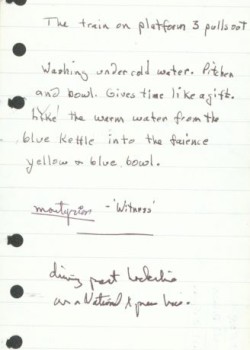 The train on platform 3 pulls out
Washing under cold water. Pitcher
and bowl. Gives time like a gift.
Like the warm water from the
blue kettle into the faience
yellow & blue bowl.
martyrion - 'Witness'
driving past Lockerbie
on a National Express bus.